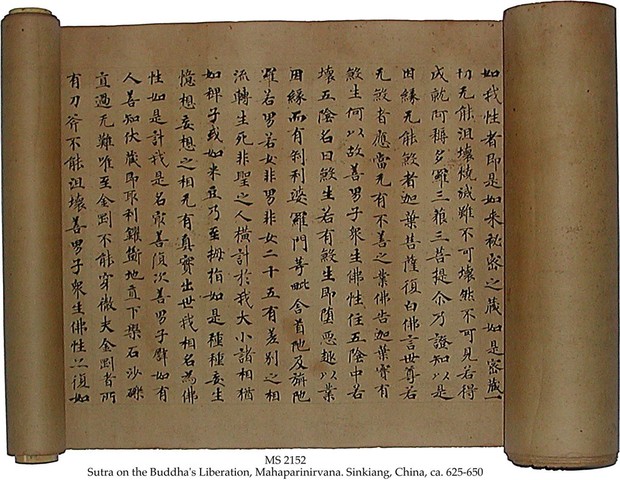 如我性者即是如来秘密之蔵如是密蔵一
切无能沮壞燒滅雖不可壞然不可見若得
成就阿耨多羅三藐三菩提尒乃證知以是
因緣无能煞者迦葉菩薩復白佛言世尊若
无煞者應當无有不善之業佛告迦葉實有
煞生何以故善男子衆生佛性住五陰中若
壞五陰名曰煞生若有煞生即墮惡趣以業
因緣而有刹利婆羅門等毗舍首陁及旃陁
羅若男若女非男非女二十五有差別之相
流轉生死非聖之人橫計於我大小諸相猶
如稗子或如米豆乃至拇指如是種種妄生
憶想妄想之相无有真實出世我相名為佛
性如是計我是名冣善復次善男子譬如有
人善知伏蔵即取利钁斲地直下槃石沙礫
直過无難唯至金剛不能穿徹夫金剛者所
有刀斧不能沮壞善男子衆生佛性亦復如
MS 2152
Sutra on the Buddha's Liberation, Mahaparinirvana. Sinkiang, China, ca. 625-650